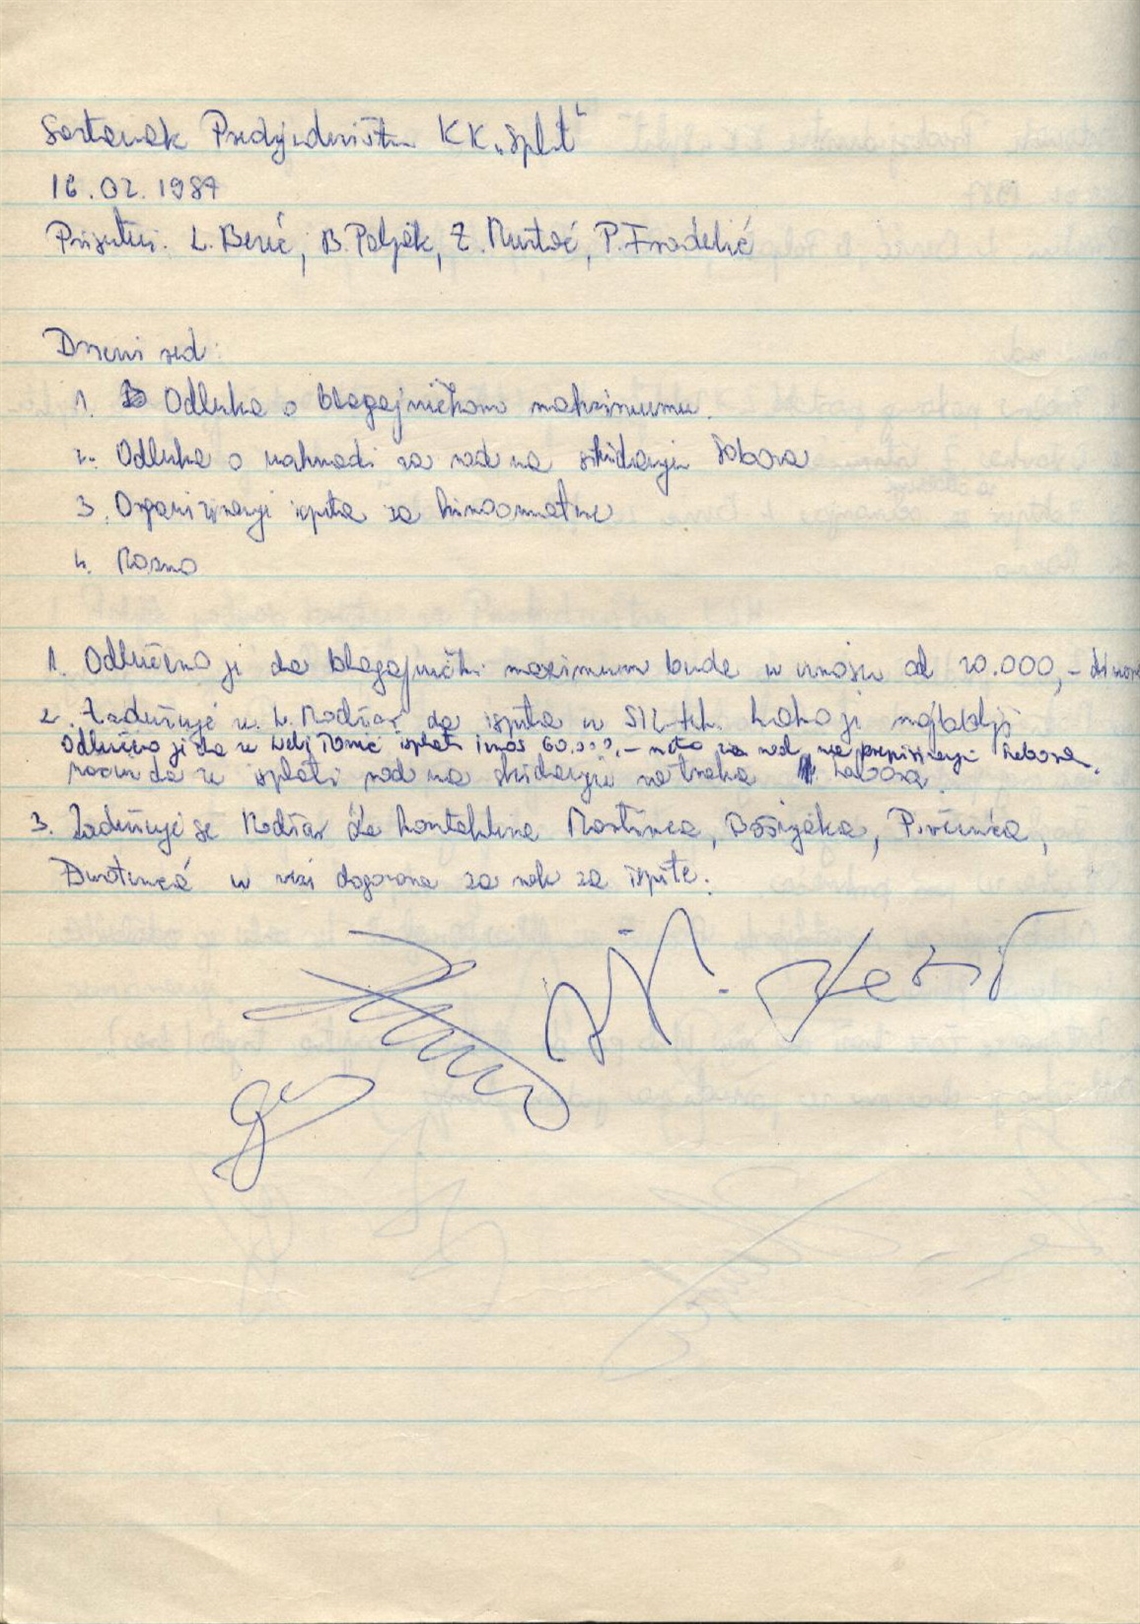 Sastanak Predsjedništva KK „Split“
16.02.1987
Prisutni: L. Berić, B. Poljak, Ž. , P. Fradelić
Dnevni red:
1. Odluka o blagajničkom maksimumu.
2. Odluka o naknadi za rad na skidanju Sabora
3. Organiziranje ispita za kinoamatere
4. Razno
1. Odlučeno je da blagajnički maximum bude u iznosu od 20.000,-
2. Zadužuje se L. da ispita u SIZ teh. kako je najbolji
Odlučeno je da se isplati iznos 60.000.- neto za rad na prepisivanju Sabora.
način da se isplati rad na skidanju sa traka Sabora.
3. Zadužuje se da kontaktira Martinca, Bogdana, ,
u vezi dogovora za rok za ispite.